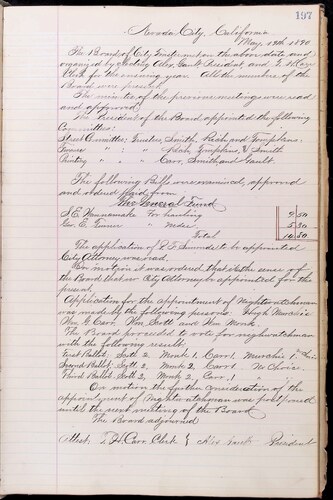 197
Nevada City, California
May 19th 1890
The Board of City Trustees met on the above date and
organized by electing Alex Gault President and T. H. Carr
Clerk for the ensuing year. All the members of the
Board were present.
The minutes of the previous meetings were read
and approved.
The President of the Board appointed the following
Committees:
Street Committee; Trustees, Smith, and Tompkins.
" : " Tompkins, & Smith
Printing " : " Carr, Smith and Gault.
The following Bills were examined, approved
and ordered paid, from
The General Fund
For hauling 2 50
Geo. E. Turner "
Total
The application of to be appointed
City Attorney was read.
On motion it was ordered that it the sense of
the Board that no City Attorney be appointed for the
present.
Application for the appointment of Nightwatchman
was made by the following persons. Hugh
Wm. G. Carr, Wm Scott and Wm Monk.
The Board proceeded to vote for nightwatchman
with the following result;
First Ballot. Scott 2. Monk 1. Carr 1. 1.
Second Ballot. Scott 2. Monk 2. Carr 1. No Choice.
Third Ballot. Scott 2, Monk 2, Carr 1
On motion the further consideration of the
appointment of Nightwatchman was postponed
until the next meeting of the Board
The Board adjourned
Attest. T. H. Carr Clerk Alex Gault President